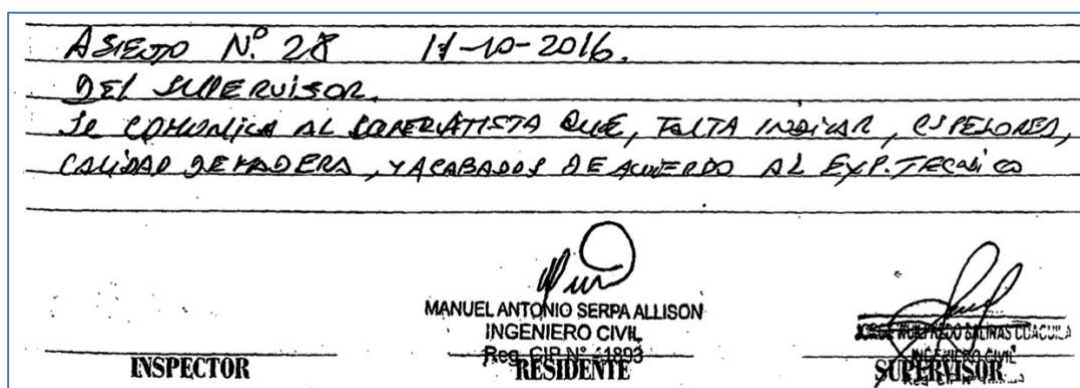 ASIENTO N.º 28 11-10-2016.
DEL SUPERVISOR.
Se COMUNICA AL CONTRATISTA QUE, FALTA INDICAR, ESPESORES,
CALIDAD DE MADERA, Y ACABADOS DE ACUERDO AL EXP. TECNICO
MANUEL ANTONIO SERPA ALLISON
INGENIERO CIVIL
Reg. CIP N° 41893
JORGE SALINAS COAQUILA
INGENIERO CIVIL
INSPECTOR
RESIDENTE
SUPERVISOR